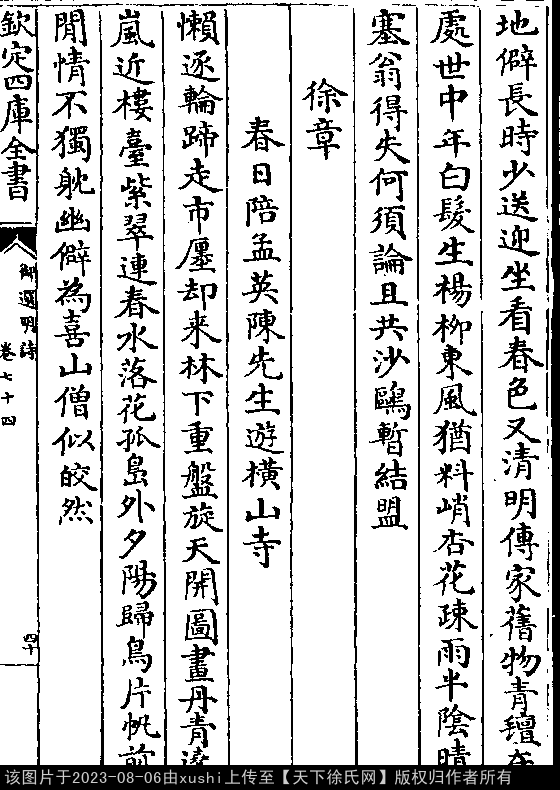 地僻長時少送迎坐看春色又清明傳家舊物青氊在
處世中年白髮生楊柳東風猶料峭杏花疎雨半陰晴
塞翁得失何須論且共沙鷗暫結盟
徐章
春日陪孟英陳先生遊橫山寺
懶逐輪蹄走市廛却来林下重盤旋天開圖畫丹青
嵐近樓臺紫翠連春水落花孤島外夕陽歸鳥片帆前
閒情不獨躭幽僻為喜山僧似皎然
欽定四庫全書
御選明詩
卷七十四
四十
该图片于2023-08-06由xushi上传至【天下徐氏网】版权归作者所有